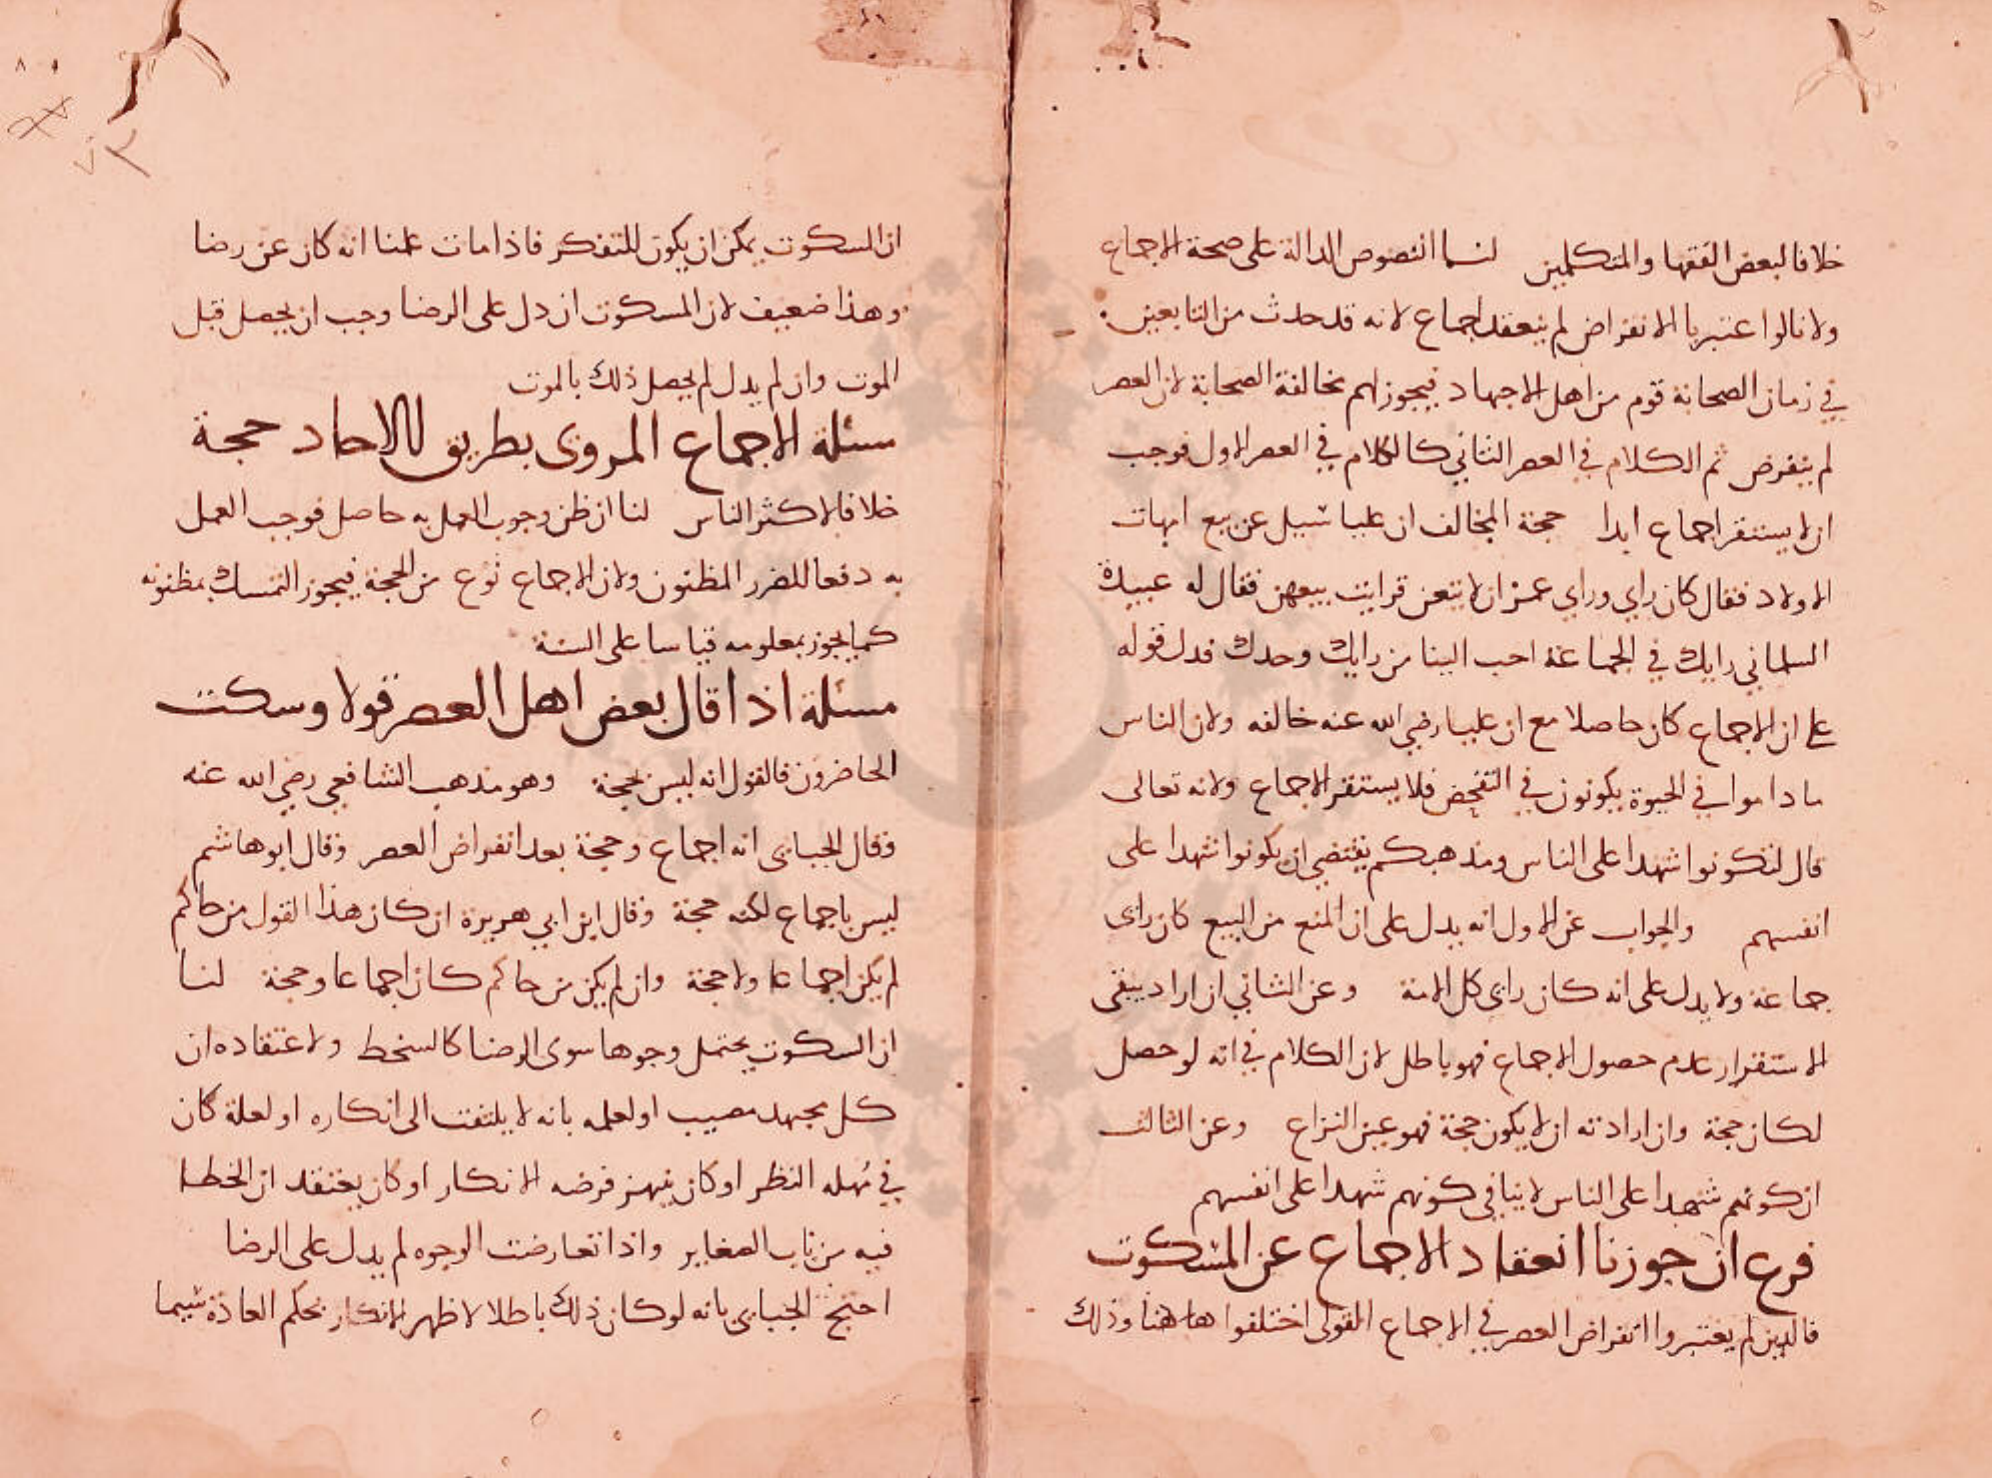 خلافا لبعض الفقها والمتكلمين لنا النصوص الدالة على صحة الاجماع
ولانا لو اعتبرنا الانقراض لم ينعقد اجماع لانه قد حدث من التابعين
في زمان الصحابة قوم من اهل الاجتهاد فيجوز لهم مخالفة الصحابة لان العصر
لم ينقرض ثم الكلام في العصر الثاني كالكلام في العصر الاول فوجب
ان لا يستقر اجماع ابدا حجة المخالف ان عليا سيل عن بيع امهات
الاولاد فقال كان رايي وراي عمر ان لا يبعن ثم رايت بيعهن فقال له عبيدة
السلماني رايك في الجماعة احب الينا من رايك وحدك فدل قوله
على ان الاجماع كان حاصلا مع ان عليا رضي الله عنه خالفه ولان الناس
ما داموا في الحيوة يكونون في التفحص فلا يستقر الاجماع ولانه تعالى
قال لتكونوا شهدا على الناس ومذهبكم يقتضي ان يكونوا شهدا على
انفسهم والجواب عن الاول انه يدل على ان المنع من البيع كان راى
جماعة ولا يدل على انه كان راى كل الامة وعن الثاني ان اراد بنفي
الاستقرار عدم حصول الاجماع فهو باطل لان الكلام في انه لو حصل
لكان حجة وان اراد به ان لا يكون حجة فهو عين النزاع وعن الثالث
ان كونهم شهدا على الناس لا ينافي كونهم شهدا على انفسهم
فرع ان جوزنا انعقاد الاجماع عن السكوت
فالذين لم يعتبروا انقراض العصر في الاجماع القولى اختلفوا هاهنا وذلك
ان السكوت يمكن ان يكون للتفكر فاذا مات علمنا انه كان عن رضا
وهذا ضعيف لان السكوت ان دل على الرضا وجب ان يحصل قبل
الموت وان لم يدل لم يحصل ذلك بالموت
مسئلة الاجماع المروى بطريق الاحاد حجة
خلافا لاكثر الناس لنا ان ظن وجوب العمل به حاصل فوجب العمل
به دفعا للضرر المظنون ولان الاجماع نوع من الحجة فيجوز التمسك بمظنونه
كما يجوز بمعلومه قياسا على السنة
مسئلة اذا قال بعض اهل العصر قولا وسكت
الحاضرون فالقول انه ليس بحجة وهو مذهب الشافعي رضي الله عنه
وقال الجبايى انه اجماع وحجة بعد انقراض العصر وقال ابو هاشم
ليس باجماع لكنه حجة وقال ابن ابي هريرة ان كان هذا القول من حاكم
لم يكن اجماعا ولا حجة وان لم يكن من حاكم كان اجماعا وحجة لنا
ان السكوت يحتمل وجوها سوى الرضا كالسخط ولاعتقاده ان
كل مجتهد مصيب او لعلمه بانه لا يلتفت الى انكاره او لعله كان
في مهلة النظر او كان ينتهز فرصة الانكار او كان يعتقد ان الخطا
فيه من باب الصغاير واذا تعارضت الوجوه لم يدل على الرضا
احتج الجبايى بانه لو كان ذلك باطلا لاظهر الانكار بحكم العادة سيما